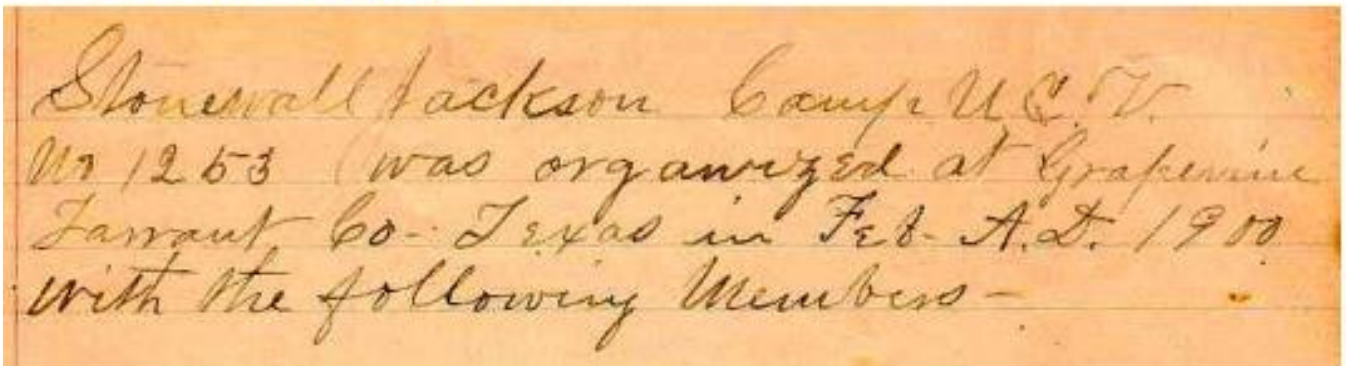 Stonewall Jackson Camp U.C.V.
No 1253 was organized at Grapevine
Tarrant Co- Texas in Feb- A.D. 1900
with the following Members-